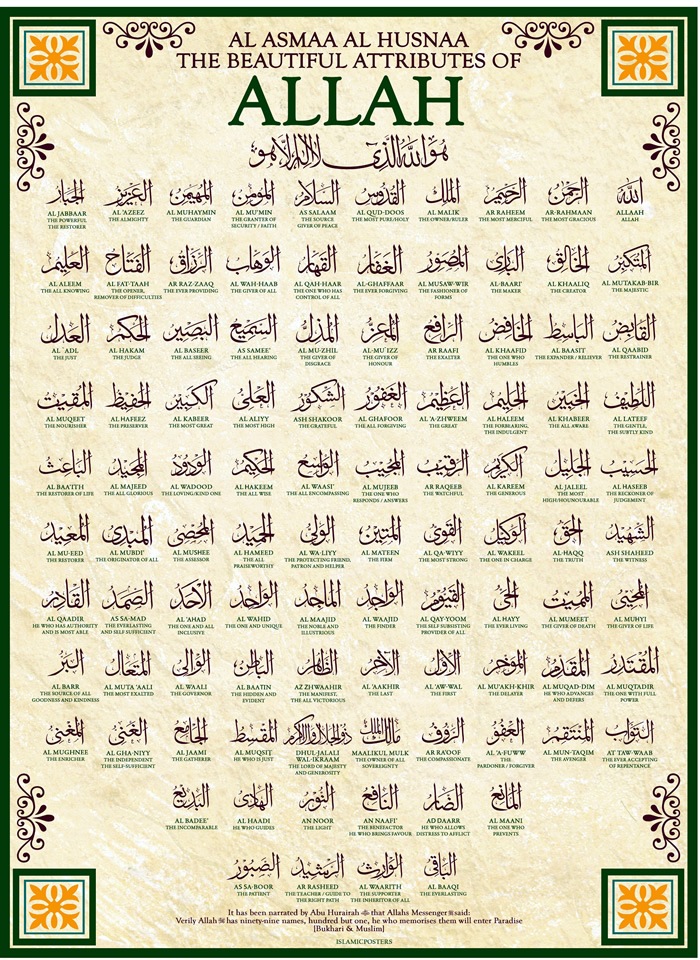 AL ASMAA AL HUSNAA
THE BEAUTIFUL ATTRIBUTES OF
ALLAH
هو الله الذي لا اله الا هو
الله
ALLAAH
ALLAH
الرحمن
AR-RAHMAAN
THE MOST GRACIOUS
الرحيم
AR RAHEEM
THE MOST MERCIFUL
الملك
AL MALIK
THE OWNER/RULER
القدوس
AL QUD-DOOS
THE MOST PURE/HOLY
السلام
AS SALAAM
THE SOURCE
GIVER OF PEACE
المؤمن
AL MU'MIN
THE GRANTER OF
SECURITY / FAITH
المهيمن
AL MUHAYMIN
THE GUARDIAN
العزيز
AL 'AZEEZ
THE ALMIGHTY
الجبار
AL JABBAAR
THE POWERFUL
THE RESTORER
المتكبر
AL MUTAKAB-BIR
THE MAJESTIC
الخالق
AL KHAALIQ
THE CREATOR
البارئ
AL-BAARI'
THE MAKER
المصور
AL MUSAW-WIR
THE FASHIONER OF
FORMS
الغفار
AL-GHAFFAAR
THE EVER FORGIVING
القهار
AL QAH-HAAR
THE ONE WHO HAS
CONTROL OF ALL
الوهاب
AL WAH-HAAB
THE GIVER OF ALL
الرزاق
AR RAZ-ZAAQ
THE EVER PROVIDING
الفتاح
AL FAT-TAAH
THE OPENER,
REMOVER OF DIFFICULTIES
العليم
AL ALEEM
THE ALL KNOWING
القابض
AL QAABID
THE RESTRAINER
الباسط
AL BAASIT
THE EXPANDER / RELIEVER
الخافض
AL KHAAFID
THE ONE WHO
HUMBLES
الرافع
AR RAAFI
THE EXALTER
المعز
AL-MU'IZZ
THE GIVER OF
HONOUR
المذل
AL MU-ZHIL
THE GIVER OF
DISGRACE
السميع
AS SAMEE'
THE ALL HEARING
البصير
AL BASEER
THE ALL SEEING
الحكم
AL HAKAM
THE JUDGE
العدل
AL 'ADL
THE JUST
اللطيف
AL LATEEF
THE GENTLE,
THE SUBTLY KIND
الخبير
AL KHABEER
THE ALL AWARE
الحليم
AL HALEEM
THE FORBEARING,
THE INDULGENT
العظيم
AL 'A-ZHWEEM
THE GREAT
الغفور
AL GHAFOOR
THE ALL FORGIVING
الشكور
ASH SHAKOOR
THE GRATEFUL
العلي
AL ALIYY
THE MOST HIGH
الكبير
AL KABEER
THE MOST GREAT
الحفيظ
AL HAFEEZ
THE PRESERVER
المقيت
AL MUQEET
THE NOURISHER
الحسيب
AL HASEEB
THE RECKONER OF
JUDGEMENT
الجليل
AL JALEEL
THE MOST
HIGH/HOUNOURABLE
الكريم
AL KAREEM
THE GENEROUS
الرقيب
AR RAQEEB
THE WATCHFUL
المجيب
AL MUJEEB
THE ONE WHO
RESPONDS / ANSWERS
الواسع
AL WAASI'
THE ALL ENCOMPASSING
الحكيم
AL HAKEEM
THE ALL WISE
الودود
AL WADOOD
THE LOVING/KIND ONE
المجيد
AL MAJEED
THE ALL GLORIOUS
الباعث
AL BAA'ITH
THE RESTORER OF LIFE
الشهيد
ASH SHAHEED
THE WITNESS
الحق
AL-HAQQ
THE TRUTH
الوكيل
AL WAKEEL
THE ONE IN CHARGE
القوي
AL QA-WIYY
THE MOST STRONG
المتين
AL MATEEN
THE FIRM
الولي
AL WA-LIYY
THE PROTECTING FRIEND,
PATRON AND HELPER
الحميد
AL HAMEED
THE ALL
PRAISEWORTHY
المحصي
AL MUSHEE
THE ASSESSOR
المبدئ
AL MUBDI'
THE ORIGINATOR OF ALL
المعيد
AL MU-EED
THE RESTORER
المحيي
AL MUHYI
THE GIVER OF LIFE
المميت
AL MUMEET
THE GIVER OF DEATH
الحي
AL HAYY
THE EVER LIVING
القيوم
AL QAY-YOOM
THE SELF SUBSISTING
PROVIDER OF ALL
الواجد
AL WAAJID
THE FINDER
الماجد
AL MAAJID
THE NOBLE AND
ILLUSTRIOUS
الواحد
AL WAHID
THE ONE AND UNIQUE
الأحد
AL 'AHAD
THE ONE AND ALL
INCLUSIVE
الصمد
AS SA-MAD
THE EVERLASTING
AND SELF SUFFICIENT
القادر
AL QAADIR
HE WHO HAS AUTHORITY
AND IS MOST ABLE
المقتدر
AL MUQTADIR
THE ONE WITH FULL
POWER
المقدم
AL MUQAD-DIM
HE WHO ADVANCES
AND DEFERS
المؤخر
AL MU'AKH-KHIR
THE DELAYER
الأول
AL 'AW-WAL
THE FIRST
الآخر
AL 'AAKHIR
THE LAST
الظاهر
AZ ZHWAAHIR
THE MANIFEST,
THE ALL VICTORIOUS
الباطن
AL BAATIN
THE HIDDEN AND
EVIDENT
الوالي
AL WAALI
THE GOVERNOR
المتعال
AL MUTA 'AALI
THE MOST EXALTED
البر
AL BARR
THE SOURCE OF ALL
GOODNESS AND KINDNESS
التواب
AT TAW-WAAB
THE EVER ACCEPTING
OF REPENTANCE
المنتقم
AL MUN-TAQIM
THE AVENGER
العفو
AL 'A-FUWW
THE
PARDONER / FORGIVER
الرؤوف
AR RA'OOF
THE COMPASSIONATE
مالك الملك
MAALIKUL MULK
THE OWNER OF ALL
SOVEREIGNTY
ذو الجلال والإكرام
DHUL-JALALI
WAL-IKRAAM
THE LORD OF MAJESTY
AND GENEROSITY
المقسط
AL MUQSIT
HE WHO IS JUST
الجامع
AL JAAMI
THE GATHERER
الغني
AL GHA-NIYY
THE INDEPENDENT
THE SELF-SUFFICIENT
المغني
AL MUGHNEE
THE ENRICHER
المانع
AL MAANI
THE ONE WHO
PREVENTS
الضار
AD DAARR
HE WHO ALLOWS
DISTRESS TO AFFLICT
النافع
AN NAAFI'
THE BENEFACTOR
HE WHO BRINGS FAVOUR
النور
AN NOOR
THE LIGHT
الهادي
AL HAADI
HE WHO GUIDES
البديع
AL BADEE'
THE INCOMPARABLE
الباقي
AL BAAQI
THE EVERLASTING
الوارث
AL WAARITH
THE SUPPORTER
THE INHERITOR OF ALL
الرشيد
AR RASHEED
THE TEACHER / GUIDE TO
THE RIGHT PATH
الصبور
AS SA-BOOR
THE PATIENT
It has been narrated by Abu Hurairah that Allahs Messenger ﷺ said:
Verily Allah has ninety-nine names, hundred but one, he who memorises them will enter Paradise
[Bukhari & Muslim]
ISLAMICPOSTERS